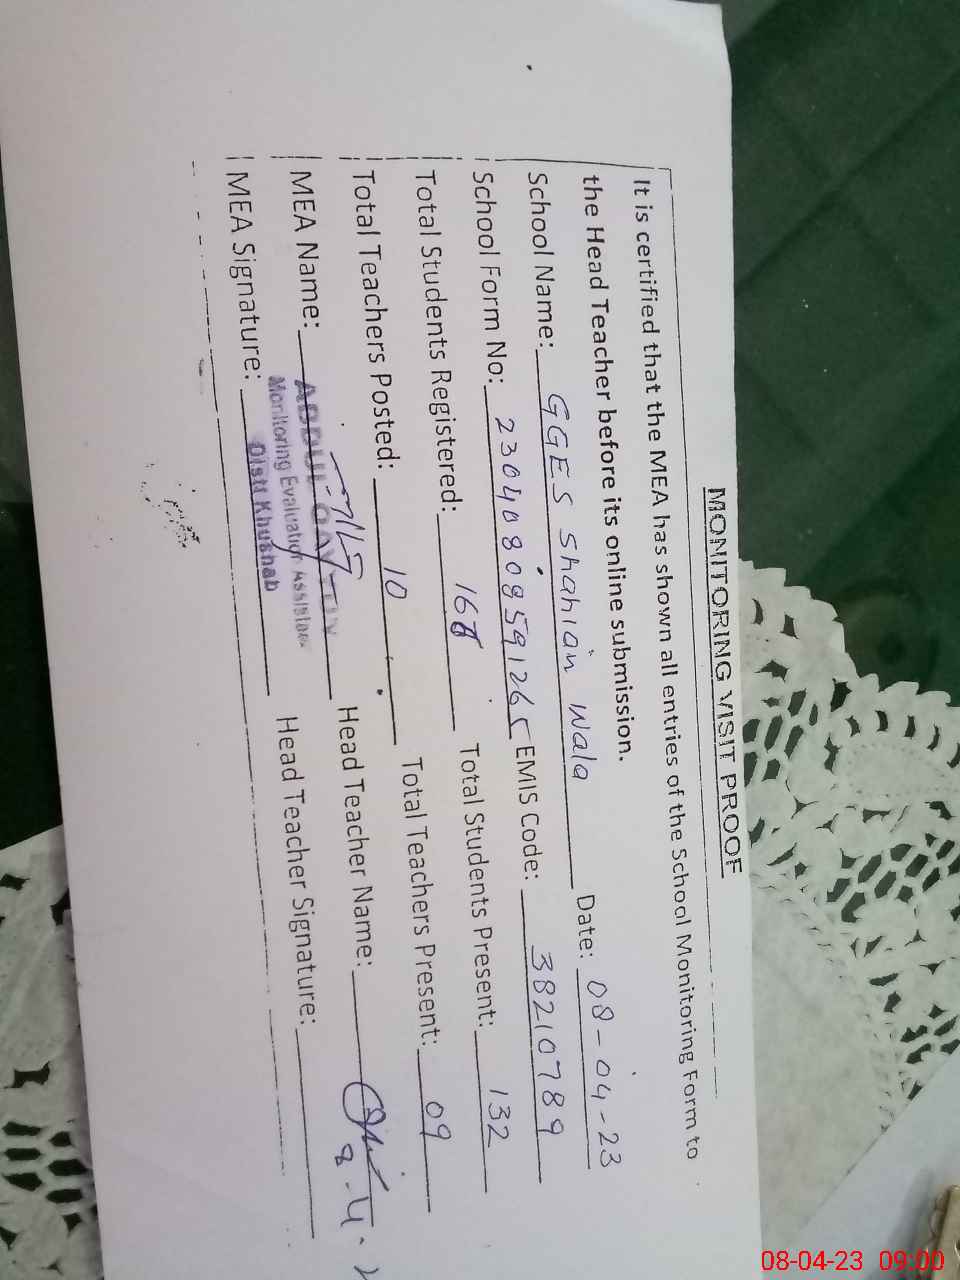 MONITORING VISIT PROOF
It is certified that the MEA has shown all entries of the School Monitoring Form to
the Head Teacher before its online submission.
School Name: GGES Shahian Wala Date: 08-04-23
School Form No: 2304080859126 EMIS Code: 38210789
Total Students Registered: Total Students Present: 132
Total Teachers Posted: 10 Total Teachers Present: 09
MEA Name: Head Teacher Name:
Monitoring Evaluation Assistant
Distt Khushab
MEA Signature: Head Teacher Signature:
08-04-23 09:00